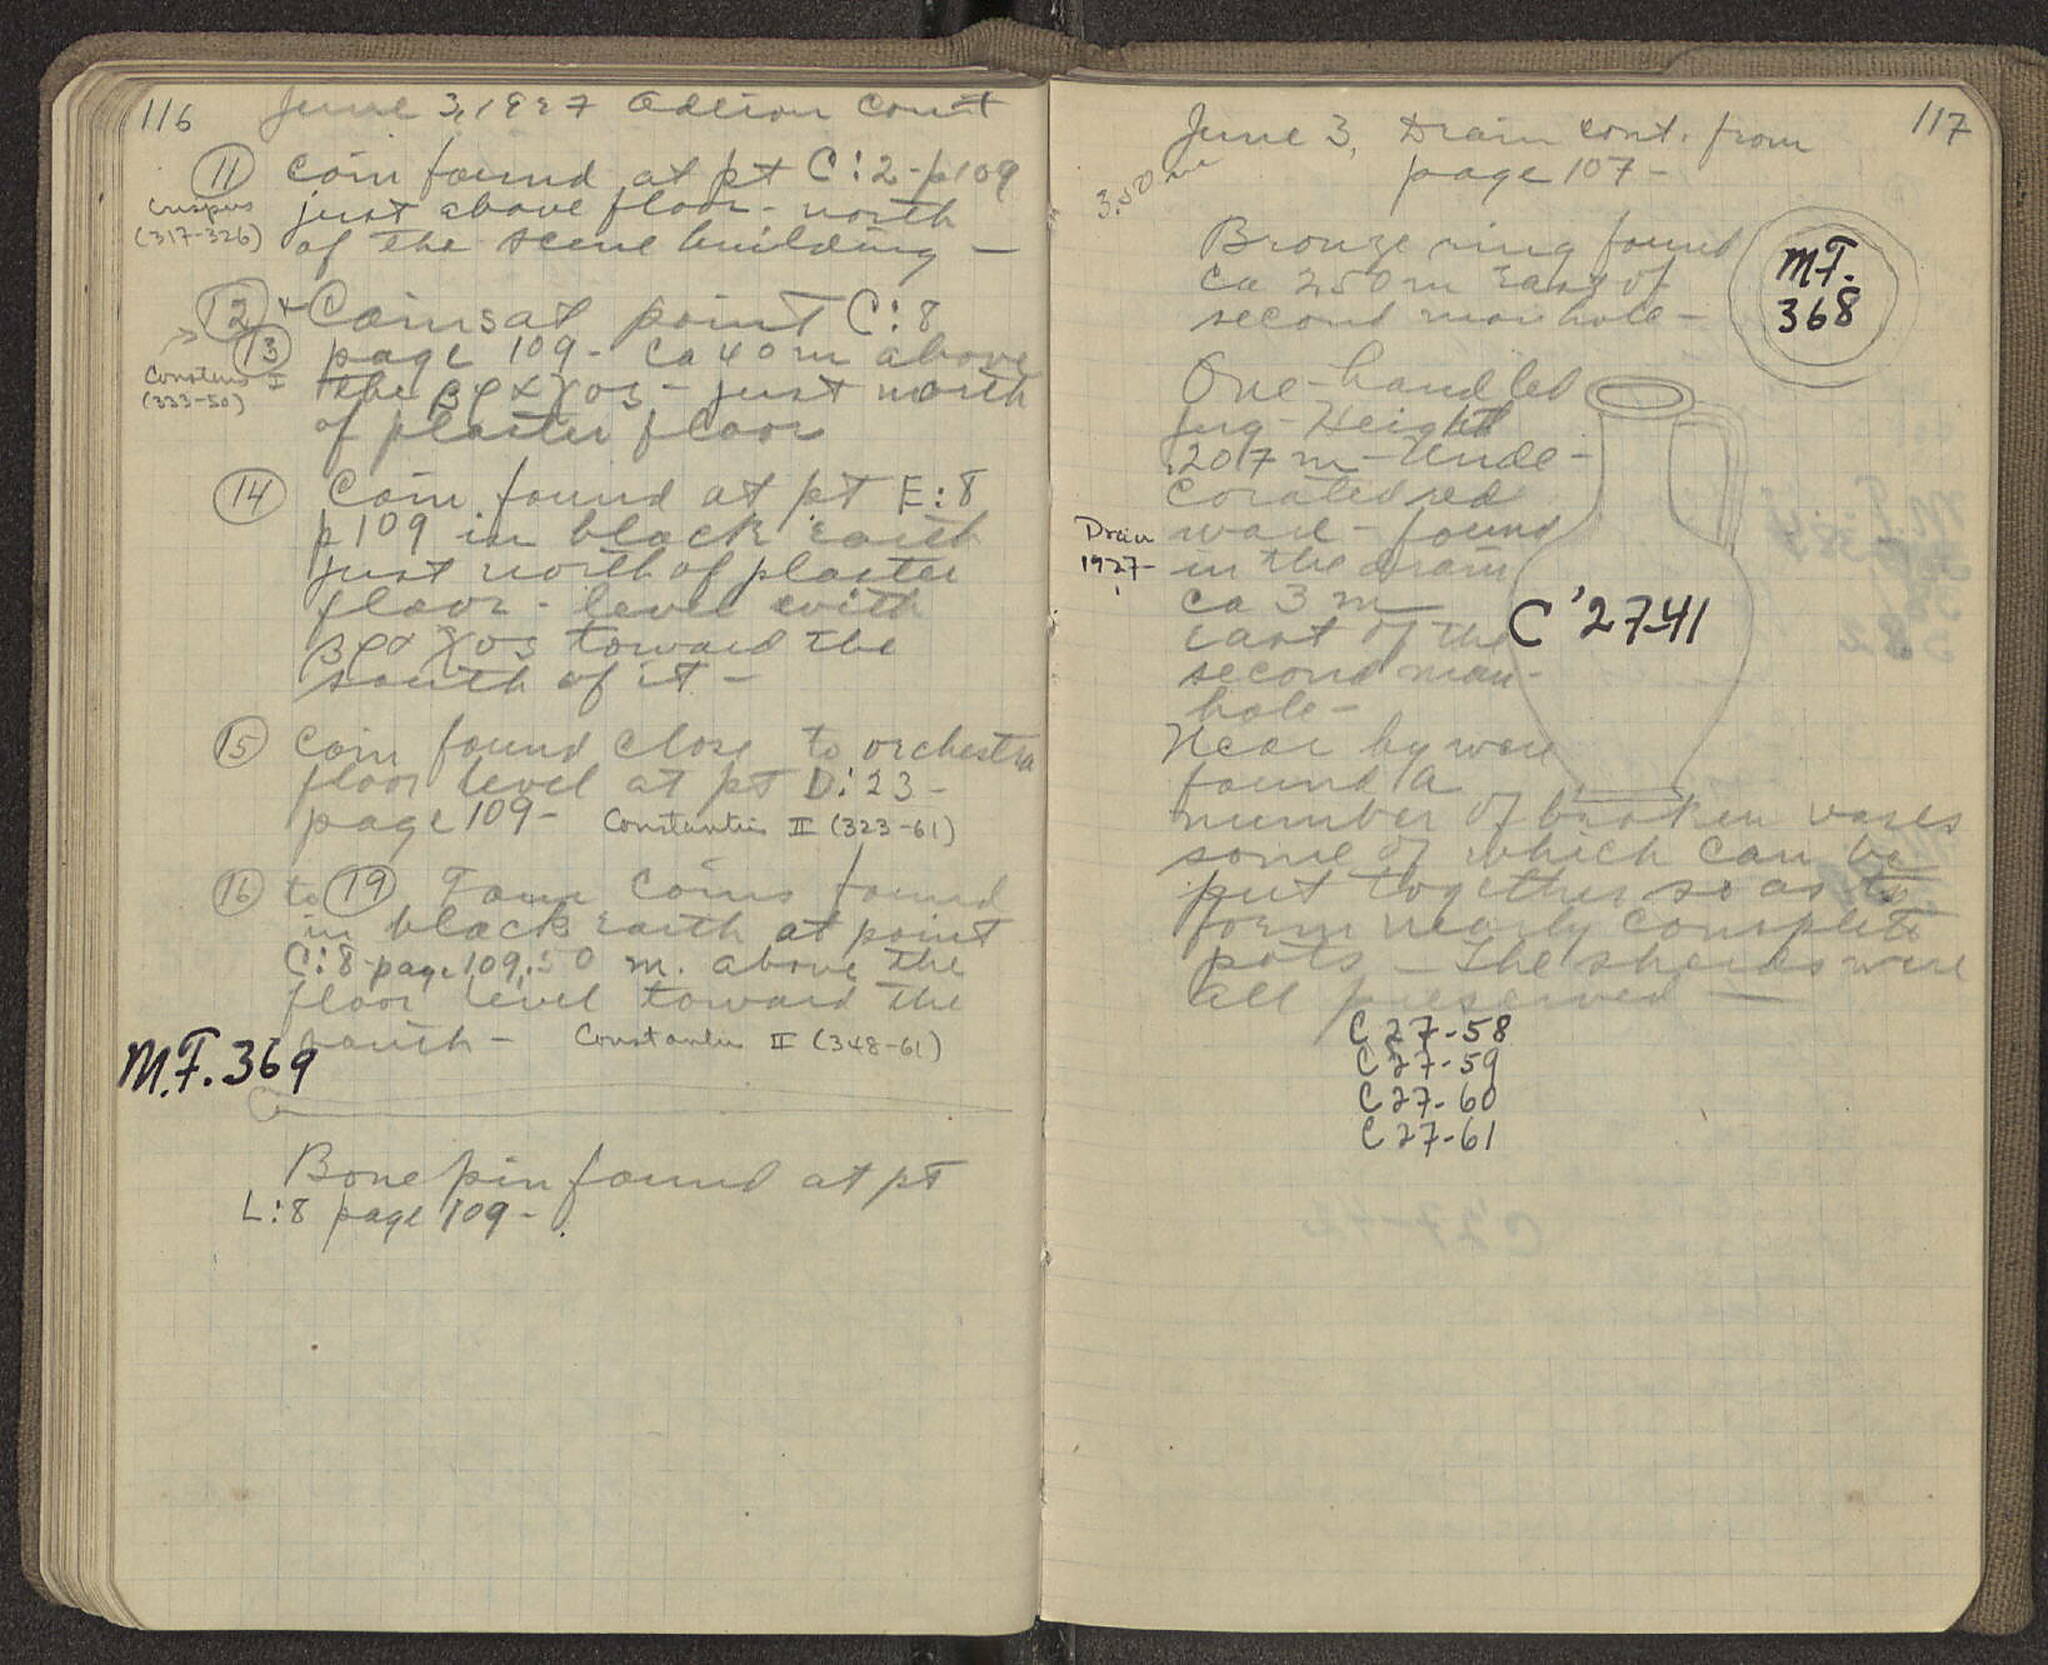 116
June 3, 1927 Odeion Cont
11 Coin found at pt C:2 - p109
Crispus
(317-326)
just above floor - north
of the scene building -
12 + Coins at point C:8
13 page 109 - ca 40 m above
Constans I
(333-50)
the βράχος - just north
of plaster floor
14 Coin found at pt E:8
p109 in black earth
just north of plaster
floor - level with
βράχος toward the
south of it -
15 Coin found close to orchestra
floor level at pt D:23 -
page 109 - Constantius II (323-61)
16 to 19 Four coins found
in black earth at point
C:8 - page 109, .50 m. above the
floor level toward the
south - Constantius II (348-61)
M.F. 369
Bone pin found at pt
L:8 page 109 -
117
June 3, Drain cont. from
page 107 -
3.50 m
Bronze ring found
ca 2.50 m east of
second manhole -
M.F.
368
One-handled
jug - Height
.207 m - Unde-
corated red
ware - found
Drain
1927-
in the drain
ca 3 m
east of the
second man-
hole -
C '27-41
Near by were
found a
number of broken vases
some of which can be
put together so as to
form nearly complete
pots - The sherds were
all preserved -
C 27-58
C 27-59
C 27-60
C 27-61